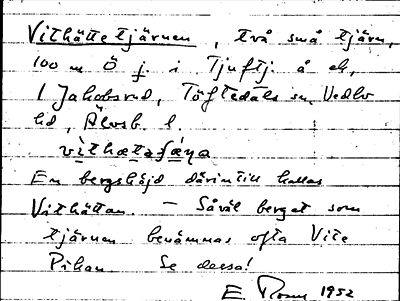 Vithättetjärnen, två små tjärn,
100 m Ö j. i Tjuftj. å ek,
1 Jakobsrud, Töftedals sn, Vedbo
hd, Älvsb. l.
vithætəʃæ̣ṇa
En bergshöjd därintill kallas
Vithättan. — Såväl berget som
tjärnen benämnas ofta Vite
Pihan. Se dessa!
E. 1952